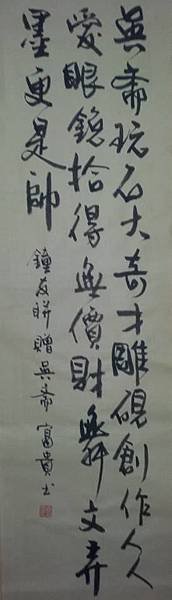 吳齋玩石大奇才雕硯創作人人
愛眼鏡拾得無價財舞文弄
墨更是帥
鐘友聯贈吳齋 富貴書